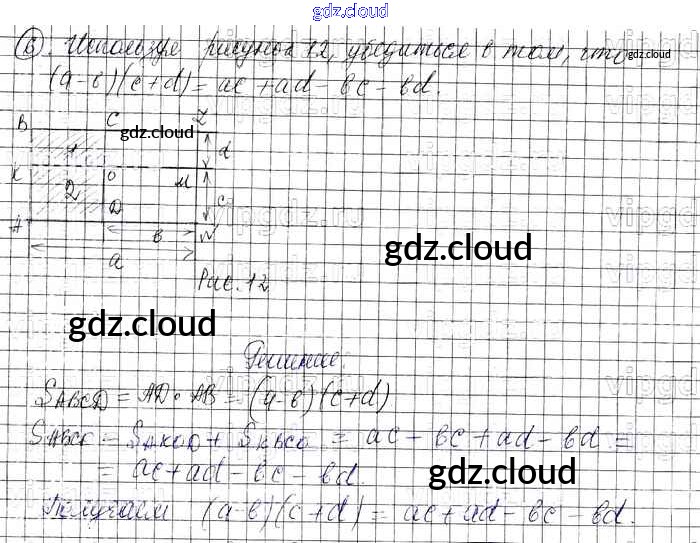 gdz.cloud
6) Используя рисунок 12, убедиться в том, что gdz.cloud
(a-b)(c+d) = ac + ad - bc - bd.
B C Z
gdz.cloud
1 d
K O M
2 c
A D N
b
a
gdz.cloud
Рис. 12
gdz.cloud
Решение.
S ABCD = AD · AB = (a-b)(c+d)
S ABCD = S AKOD + S KBCO = ac - bc + ad - bd =
= ac + ad - bc - bd.
gdz.cloud
Получаем (a-b)(c+d) = ac + ad - bc - bd.
gdz.cloud